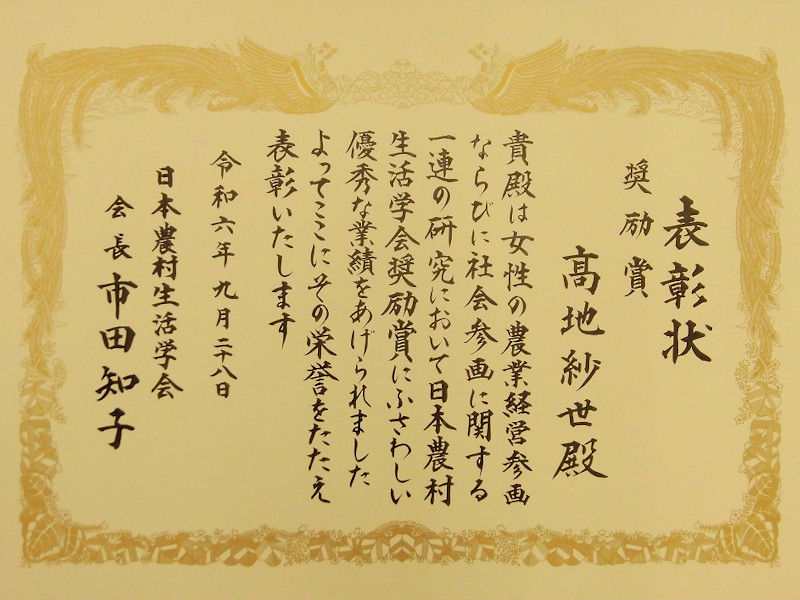 表彰状
奨励賞
髙地紗世殿
貴殿は女性の農業経営参画
ならびに社会参画に関する
一連の研究において日本農村
生活学会奨励賞にふさわしい
優秀な業績をあげられました
よってここにその栄誉をたたえ
表彰いたします
令和六年九月二十八日
日本農村生活学会
会長 市田知子